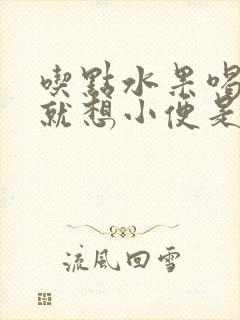 喫點水果喝
就想小便是
流風回雪